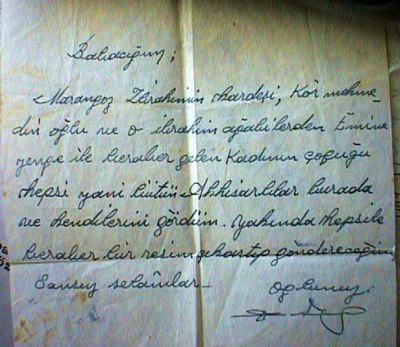 Babacığım;
Marangoz İbrahimin kardeşi, Kör mahme-
din oğlu ve o ibrahim ağabilerden Emine
yenge ile beraber gelen Kadının çoçuğu
hepsi yani bütün Akhisarlılar burada
ve kendilerini gördüm. Yakında hepsile
beraber bir resim çıkartıp göndereceğim
Sonsuz selâmlar-
Oğlunuz